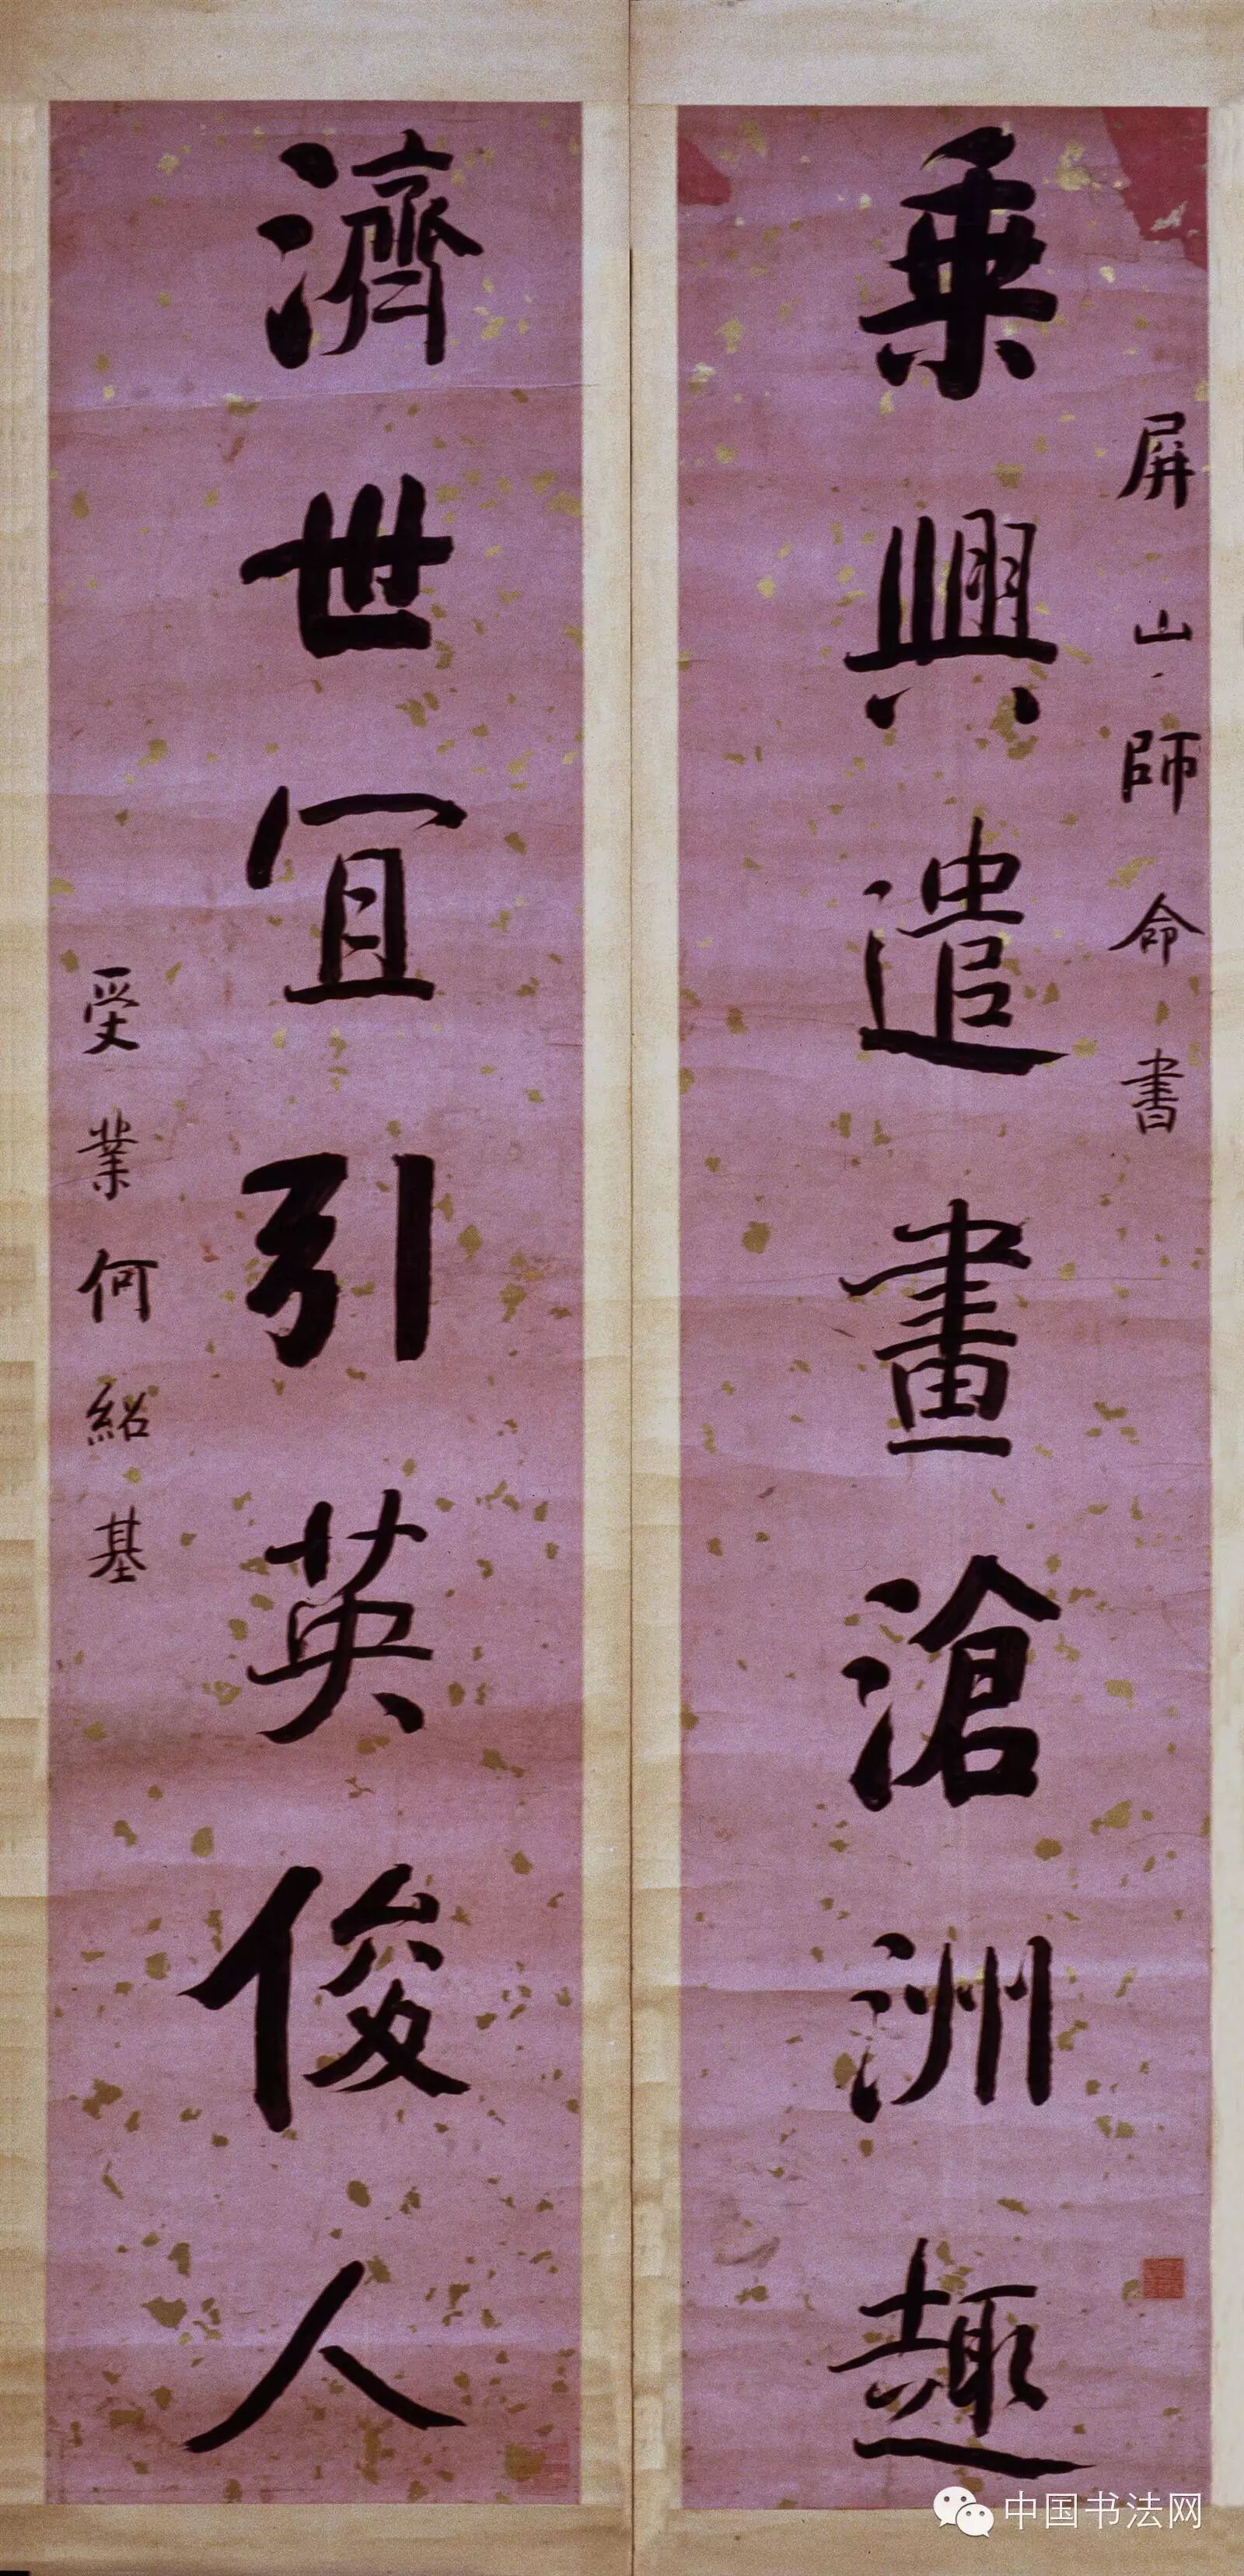 屏山師命書
乘興遣畫滄洲趣
濟世宜引英俊人
受業何紹基
中国书法网